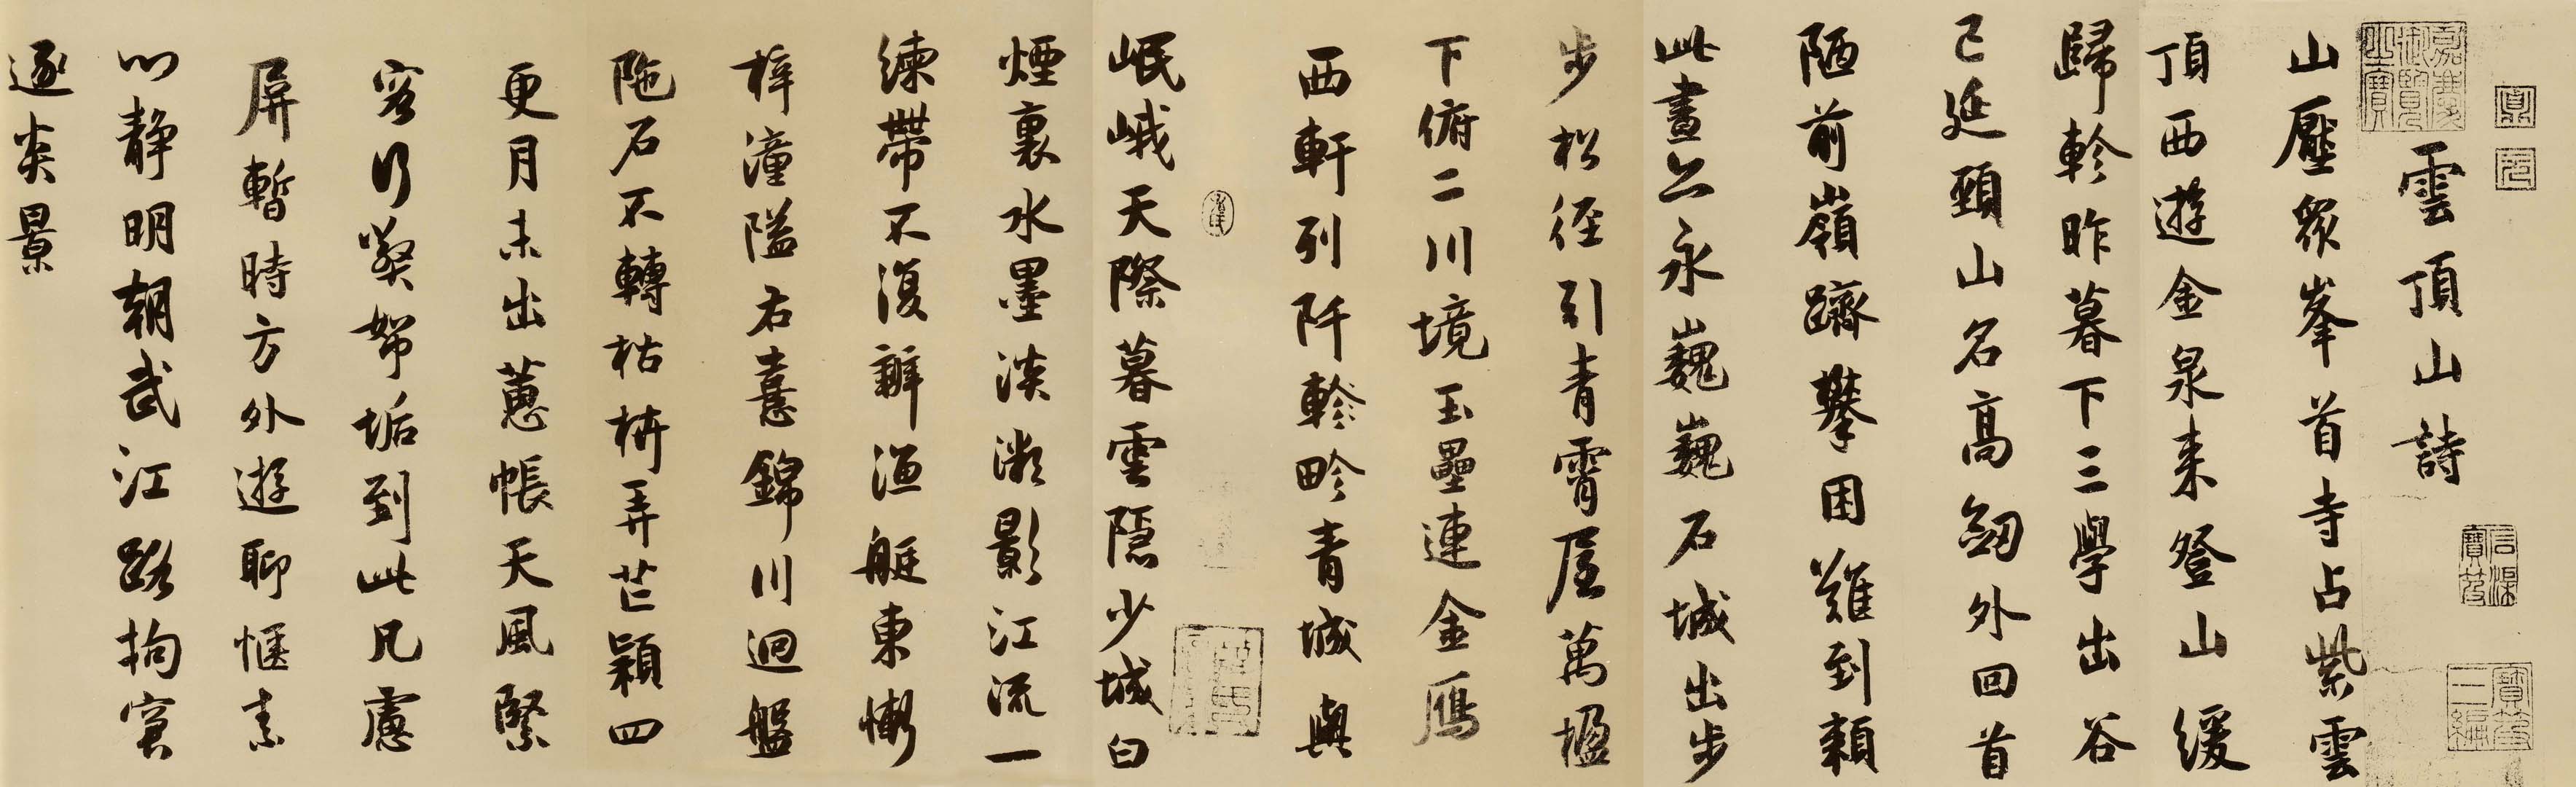 鼎
元
嘉慶御覽之寶
石渠寶笈
寶笈三編
雲頂山詩
山壓衆峯首寺占紫雲
頂西遊金泉来登山緩
歸軫昨暮下三學出谷
已延頸山名高劒外回首
陋前嶺躋攀困難到頼
此晝永巍巍石城出步
步松径引青霄屋萬楹
下俯二川境玉壘連金鴈
西軒列阡軫畛青城與
岷峨天際暮雲隱少城白
煙裏水墨淡微影江流一
練帶不復辯漁艇東慚
梓潼隘右憙錦川迴盤
陁石不轉枯枿弄芒穎四
更月未出蕙帳天風緊
客行垢到此凡慮
屏暫時方外遊聊愜素
心静明朝武江路拘窘
逐炎景